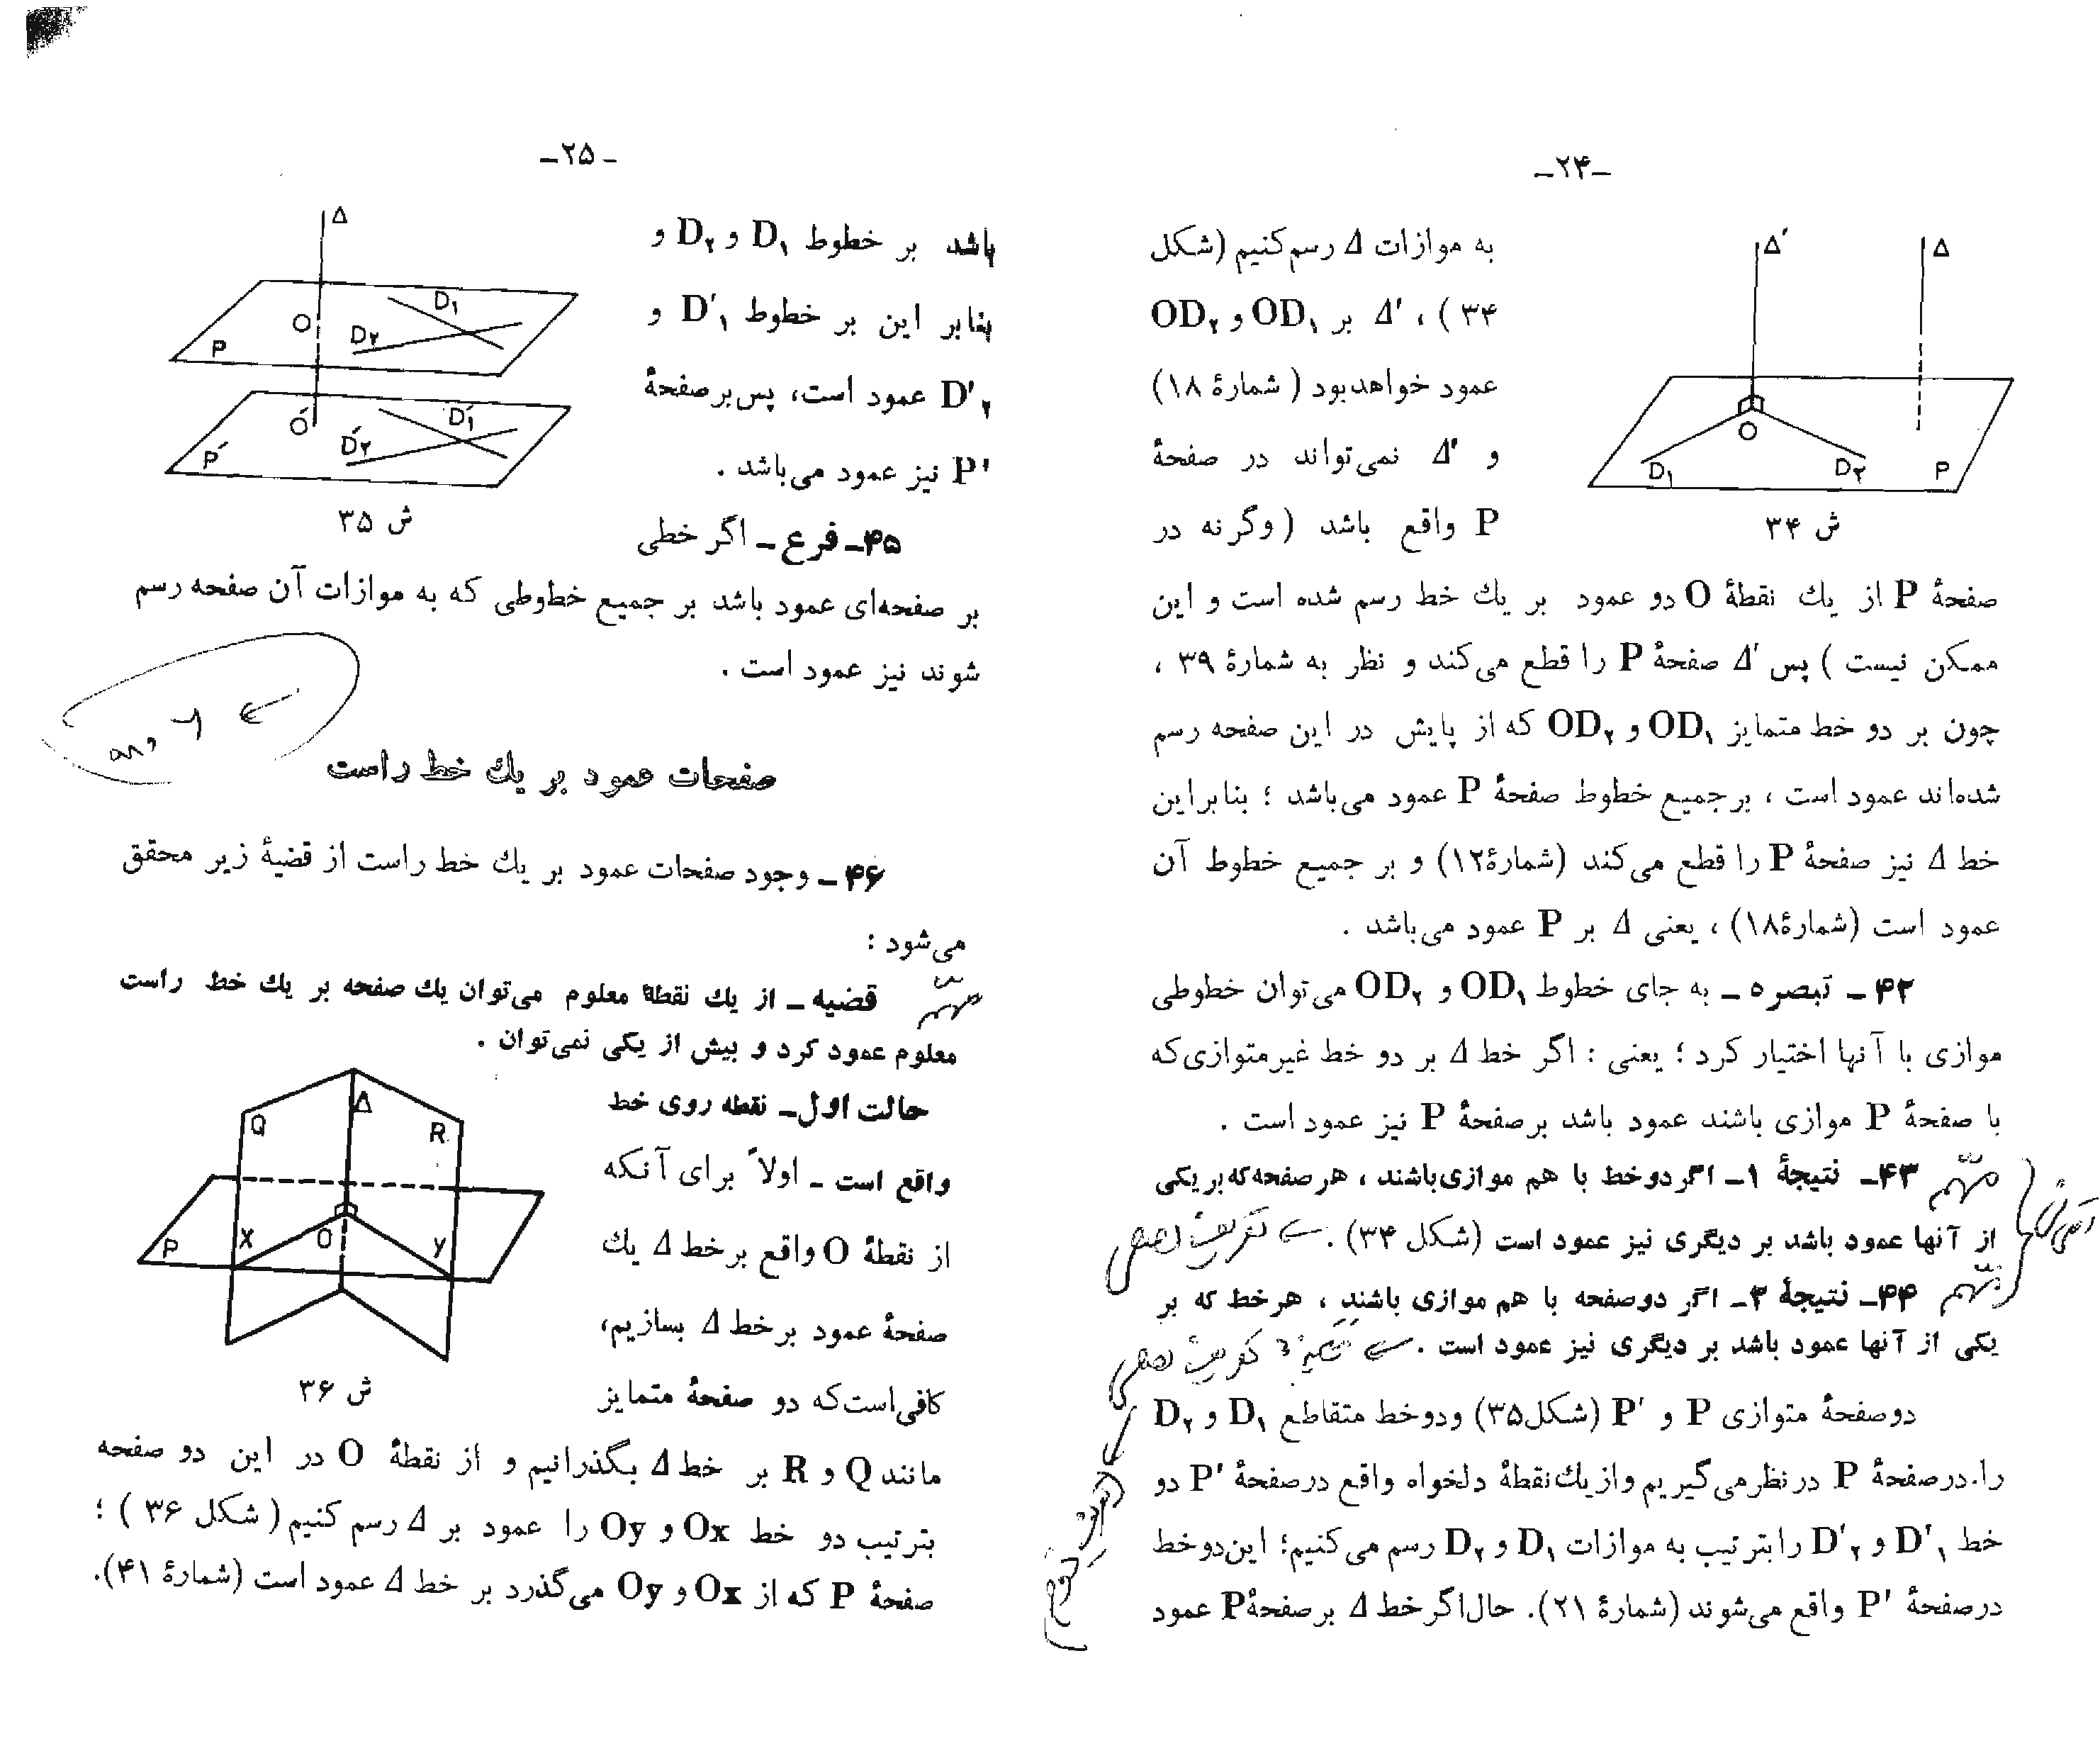 -۲۴-
به موازات Δ رسم کنیم (شکل
۳۴) ، Δ′ بر OD۱ و OD۲
عمود خواهد بود ( شمارهٔ ۱۸)
و Δ′ نمی‌تواند در صفحهٔ
P واقع باشد ( وگرنه در
Δ′ Δ
O
D۱ D۲ P
ش ۳۴
صفحهٔ P از یك نقطهٔ O دو عمود بر یك خط رسم شده است و این
ممکن نیست ) پس Δ′ صفحهٔ P را قطع می‌کند و نظر به شمارهٔ ۳۹ ،
چون بر دو خط متمایز OD۱ و OD۲ که از پایش در این صفحه رسم
شده‌اند عمود است ، بر جمیع خطوط صفحهٔ P عمود می‌باشد ؛ بنابراین
خط Δ نیز صفحهٔ P را قطع می‌کند (شمارهٔ۱۲) و بر جمیع خطوط آن
عمود است (شمارهٔ۱۸) ، یعنی Δ بر P عمود می‌باشد .
۴۲ - تبصره - به جای خطوط OD۱ و OD۲ می‌توان خطوطی
موازی با آنها اختیار کرد ؛ یعنی : اگر خط Δ بر دو خط غیرمتوازی‌که
با صفحهٔ P موازی باشند عمود باشد بر صفحهٔ P نیز عمود است .
مهم ۴۳- نتیجهٔ ۱- اگر دو خط با هم موازی باشند ، هر صفحه که بر یکی
از آنها عمود باشد بر دیگری نیز عمود است (شکل ۳۴) .
مهم ۴۴- نتیجهٔ ۲- اگر دو صفحه با هم موازی باشند ، هر خط که بر
یکی از آنها عمود باشد بر دیگری نیز عمود است .
دو صفحهٔ متوازی P و P′ (شکل۳۵) و دو خط متقاطع D۱ و D۲
را در صفحهٔ P در نظر می‌گیریم و از یك نقطهٔ دلخواه واقع در صفحهٔ P′ دو
خط D′۱ و D′۲ را بترتیب به موازات D۱ و D۲ رسم می‌کنیم؛ این دو خط
در صفحهٔ P′ واقع می‌شوند (شمارهٔ ۲۱). حال اگر خط Δ بر صفحهٔ P عمود
-۲۵-
باشد بر خطوط D۱ و D۲ و
بنابر این بر خطوط D′۱ و
D′۲ عمود است، پس بر صفحهٔ
P′ نیز عمود می‌باشد .
Δ
O D۱ D۲ P
O′ D′۱ D′۲ P′
ش ۳۵
۴۵- فرع - اگر خطی
بر صفحه‌ای عمود باشد بر جمیع خطوطی که به موازات آن صفحه رسم
شوند نیز عمود است .
صفحات عمود بر یك خط راست
۴۶- وجود صفحات عمود بر یك خط راست از قضیهٔ زیر محقق
می‌شود :
مهم قضیه - از یك نقطهٔ معلوم می‌توان یك صفحه بر یك خط راست
معلوم عمود کرد و بیش از یکی نمی‌توان .
حالت اول- نقطه روی خط
واقع است - اولاً برای آنکه
از نقطهٔ O واقع بر خط Δ یك
صفحهٔ عمود بر خط Δ بسازیم،
کافی است‌که دو صفحهٔ متمایز
Q Δ R
P X O Y
ش ۳۶
مانند Q و R بر خط Δ بگذرانیم و از نقطهٔ O در این دو صفحه
بترتیب دو خط Ox و Oy را عمود بر Δ رسم کنیم ( شکل ۳۶ ) ؛
صفحهٔ P که از Ox و Oy می‌گذرد بر خط Δ عمود است (شمارهٔ ۴۱).